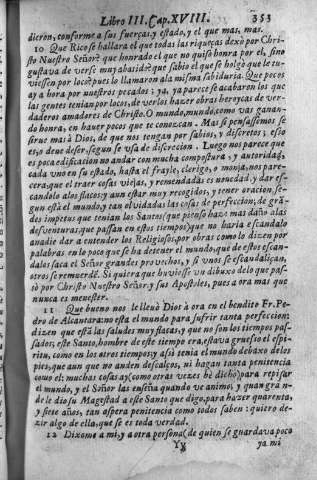 Libro III. Cap. XVIII. 353
dieron, conforme a sus fuerças, y estado, y el que mas, mas.
10 Que Rico se hallara el que todas las riqueças dexò por Chri-
sto Nuestro Señor? que honrado el que no quiso honra por el, sino
gustava de verse muy abatido? que sabio el que se holgò que le tu-
viessen por loco? pues lo llamaron a la misma sabiduria. Que pocos
ay a hora por nuestros pecados; ya, ya parece se acabaron los que
las gentes tenian por locos, de verlos hazer obras heroycas de ver-
daderos amadores de Christo. O mundo, mundo, como vas ganan-
do honra, en haver pocos que te conozcan. Mas si pensassemos se
sirve mas à Dios, de que nos tengan por sabios, y discretos, esso
esso deue de ser, segun se vsa de discrecion. Luego nos parece que
es poca edificacion no andar con mucha compostura, y autoridad,
cada vno en su estado, hasta el frayle, clerigo, o monja, nos pare-
cera, que el traer cosas viejas, y remendadas es novedad, y dar es-
candalo a los flacos; y aun estar muy recogidos, y tener oracion, se-
gun està el mundo, y tan olvidadas las cosas de perfeccion, de gran-
des impetus que tenian los Santos (que pienso haze mas daño a las
desventuras, que passan en estos tiempos) que no haria escandalo
a nadie dar a entender los Religiosos, por obras como lo dizen por
palabras en lo poco que se ha de tener el mundo, que de estos escan-
dalos saca el Señor grandes provechos, y si vnos se escandaliçan,
otros se remuerdē. Si quiera que huviesse vn dibuxo de lo que pas-
sò por Christo Nuestro Señor, y sus Apostoles, pues a ora mas que
nunca es menester.
11 Que bueno nos le lleuò Dios à ora en el bendito Fr. Pe-
dro de Alcantara: no esta el mundo para sufrir tanta perfeccion:
dizen que està las saludes muy flacas, y que no son los tiempos pas-
sados, este Santo, hombre de este tiempo era, estava gruesso el espi-
ritu, como en los otros tiempos, y asi tenia el mundo debaxo de los
pies, que aun que no anden desnudos, ni hagan tanta penitencia
como el: muchas cosas ay (como otras vezes hē dicho) para repisar
el mundo, y el Señor las enseña quando ve animo, y quan gran-
de le dio su Magestad a este Santo que digo, para hazer quarenta,
y siete años, tan aspera penitencia como todos saben: quiero de-
zir algo de ella, que se es toda verdad.
12 Dixome a mi, y a otra persona (de quien se guardava poco
Yy ya mi